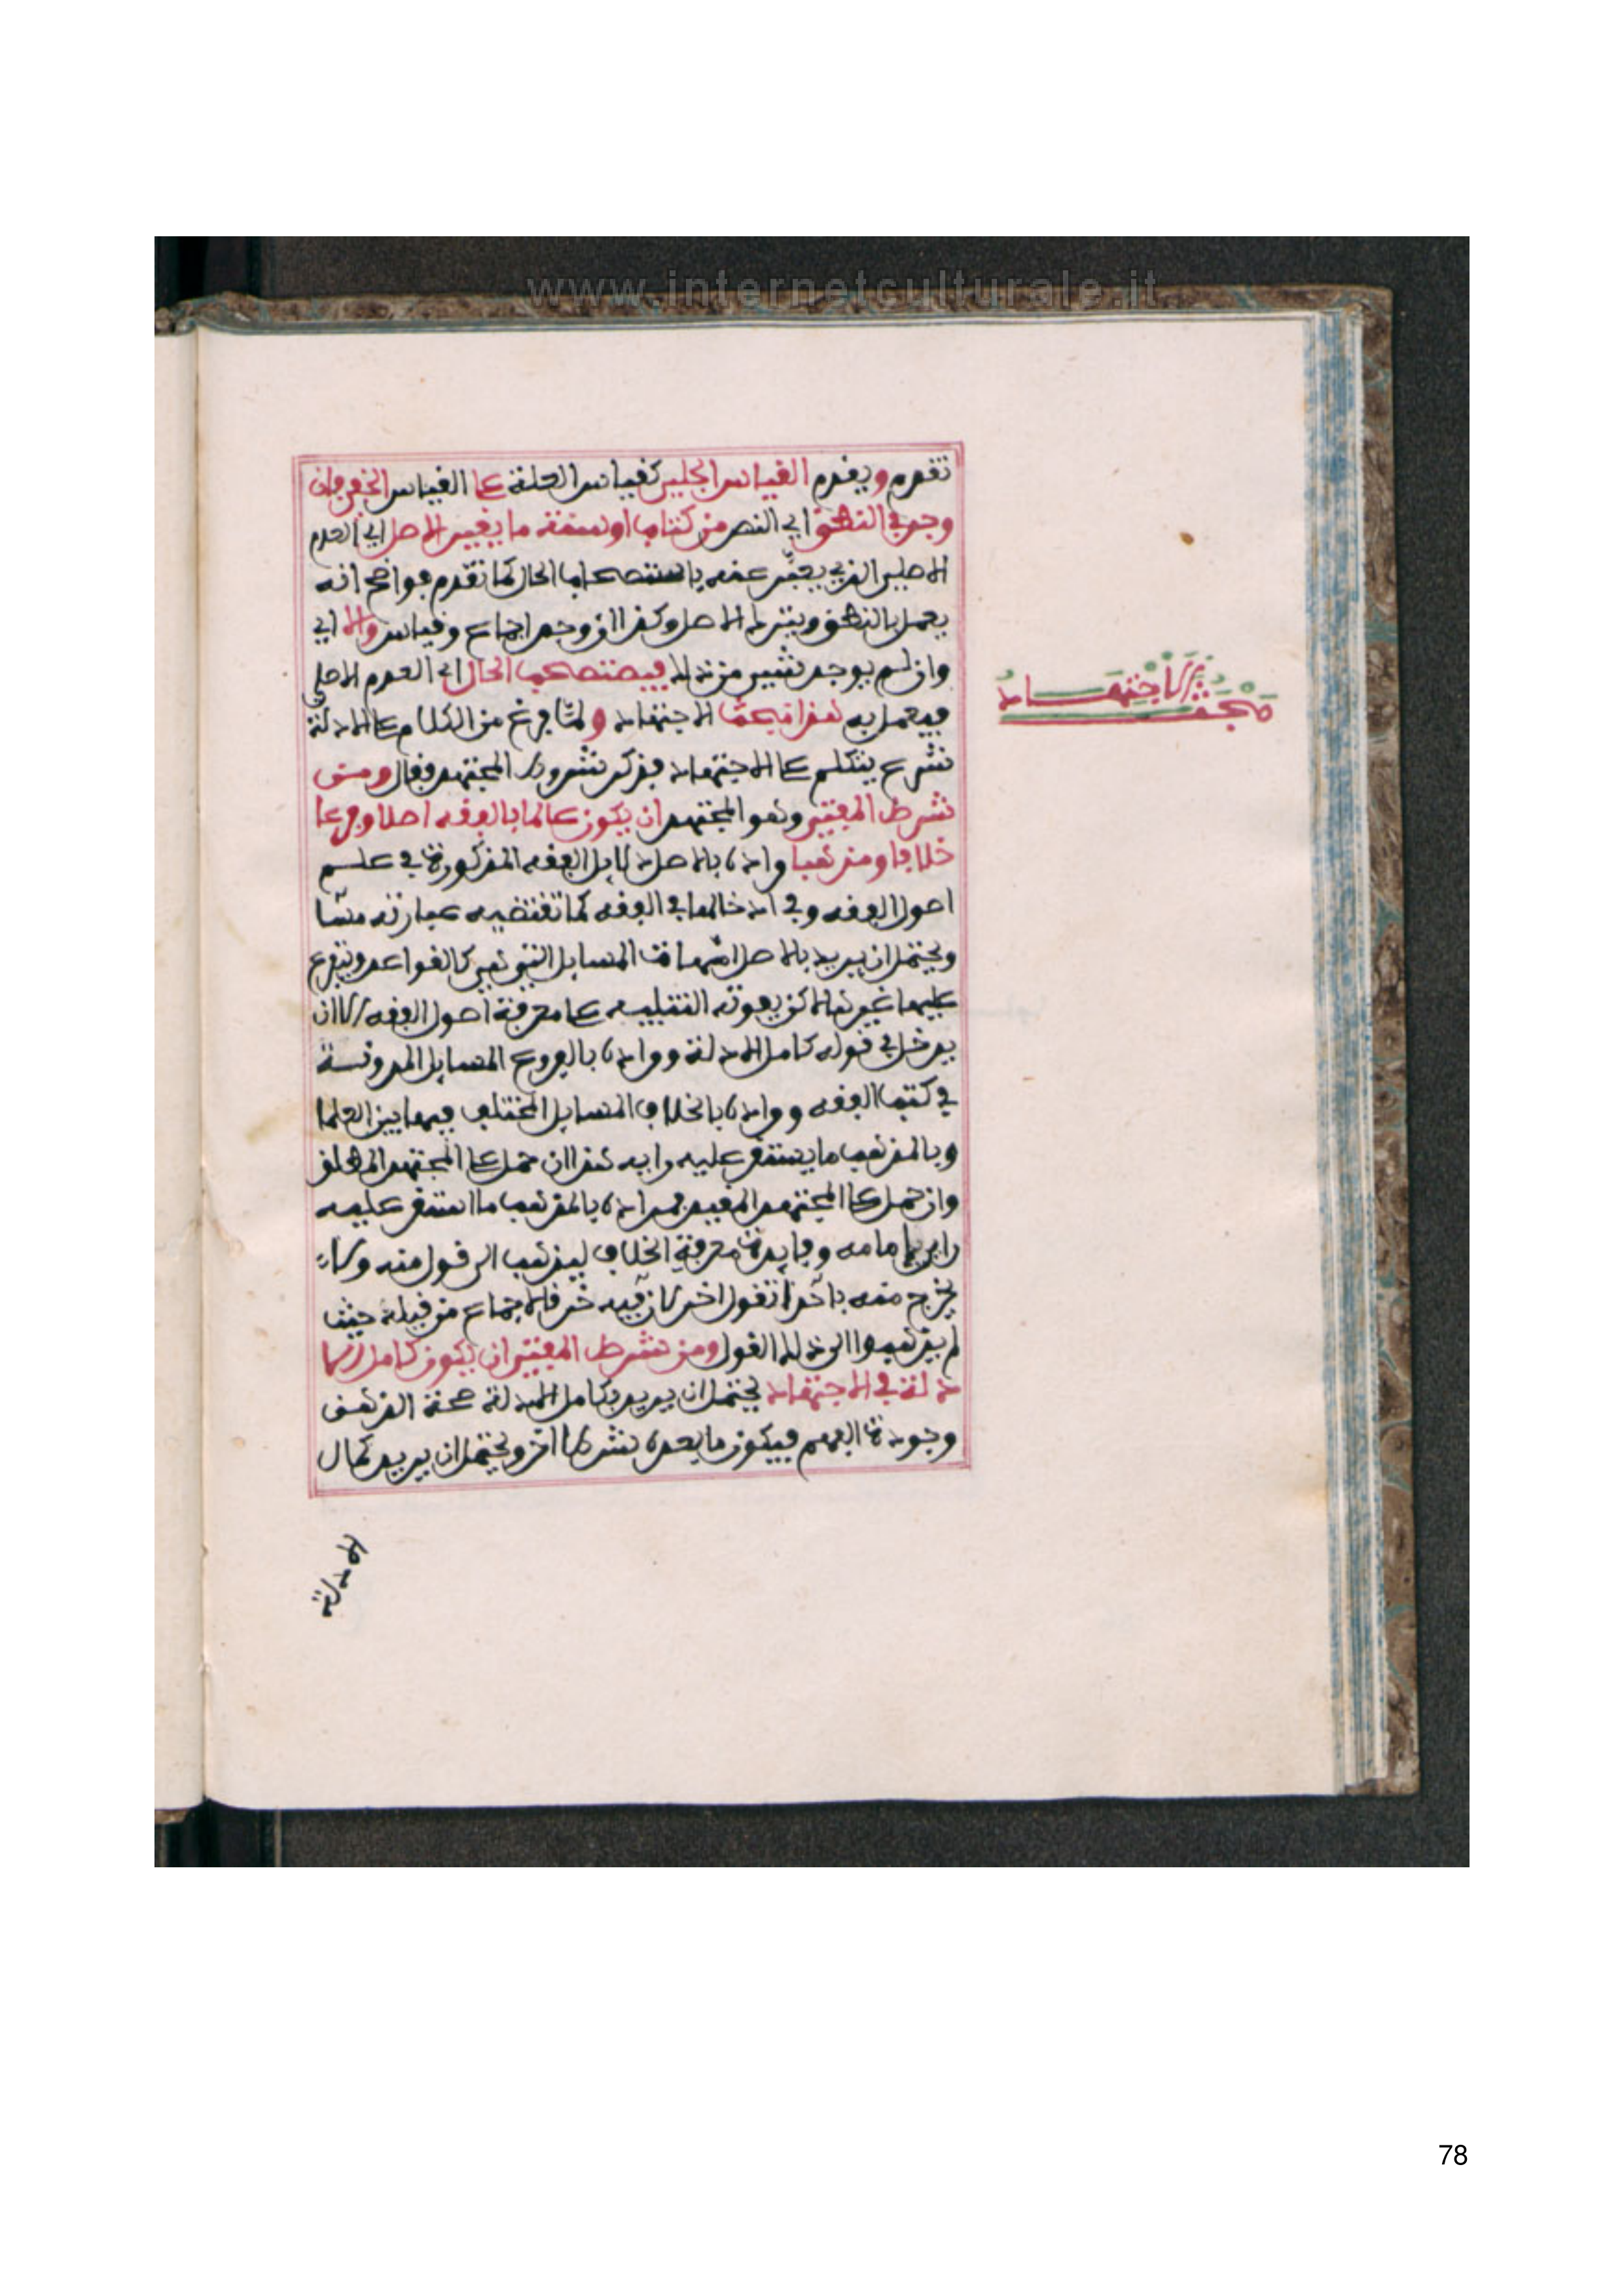 www.internetculturale.it
تقدم ويقدم القياس الجلي كقياس العلة على القياس الخفي فان
وجد في النطق اي النص من كتاب او سنة ما يغير الاصل اي العدم
الاصلي الذي يعبر عنه باستصحاب الحال كما تقدم فواضح انه
يعمل بالنطق ويترك الاصل وكذا ان وجد اجماع وقياس والا اي
وان لم يوجد شيء من ذلك فيستصحب الحال اي العدم الاصلي
فيعمل به هذا مبحث الاجتهاد ولما فرغ من الكلام على الادلة
شرع يتكلم على الاجتهاد فذكر شروط المجتهد فقال ومن
شرط المفتي وهو المجتهد ان يكون عالما بالفقه اصلا وفرعا
خلافا ومذهبا واده بالاصل دلايل الفقه المذكورة في علم
اصول الفقه وفي ادخالها في الفقه كما تقتضيه عبارته مسا
ويحتمل ان يريد بالاصل امهات المسايل التي هي كالقواعد ويتفرع
عليها غيرها لاكن يفوته التنبيه على معرفة اصول الفقه الا ان
يدخل في قوله كامل الادلة ومراده بالفروع المسايل المدونة
في كتب الفقه ومراده بالخلاف المسايل المختلف فيها بين العلما
وبالمذهب ما يستقر عليه رايه هذا ان حمل على المجتهد المطلق
وان حمل على المجتهد المقيد فمراده بالمذهب ما استقر عليه
راي امامه وفايدة معرفة الخلاف ليذهب الى قول منه ولا
يخرج منه باحداث قول اخر لان فيه خرق لاجماع من قبله حيث
لم يذهبوا الى ذلك القول ومن شرط المفتي ان يكون كامل الا
دلة في الاجتهاد يحتمل ان يريد بكامل الادلة صحة الذهن
وجودة الفهم فيكون ما بعده شرطا اخر ويحتمل ان يريد كمال
مبحث الاجتهاد
الادلة
78